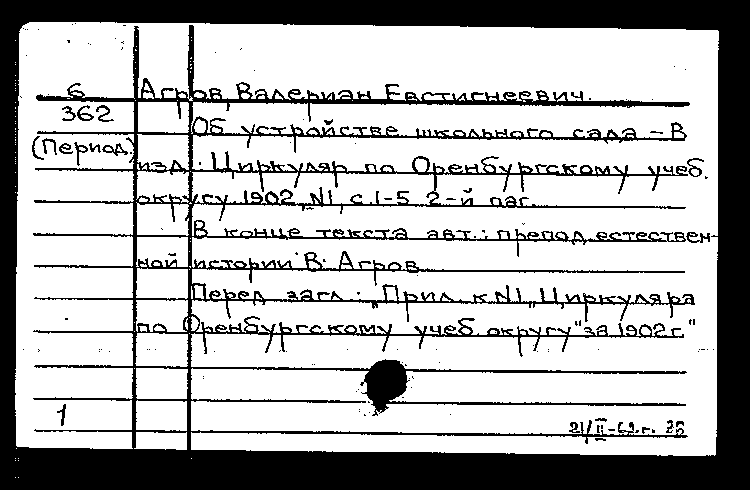 6
362
(Период)
Агров, Валериан Евстигнеевич.
Об устройстве школьного сада – В
изд.: Циркуляр по Оренбургскому учеб.
округу 1902, №1, с. 1-5 2-й паг.
В конце текста авт.: препод. естествен-
ной истории В. Агров
Перед загл.: „Прил. к №1 „Циркуляра
по Оренбургскому учеб. округу" за 1902 г."
1
21/II-69.г.